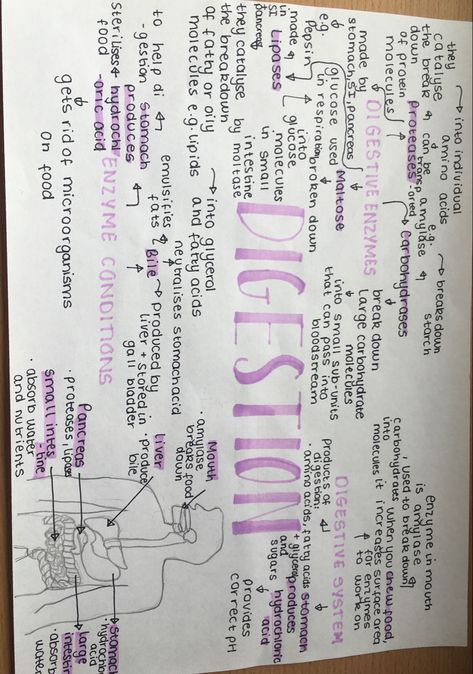 DIGESTION
DIGESTIVE ENZYMES
proteases
they
catalyse
the break
down
of protein
molecules
into individual
amino acids
can be
made by
stomach, SI, pancreas
e.g.
pepsin
carbohydrases
e.g.
amylase
breaks down
starch
break down
large carbohydrate
molecules
into small sub-units
that can pass into
bloodstream
Maltose
broken down
into
glucose
molecules
in small
intestine
by maltase
glucose used
in respiration
Lipases
made
in
pancreas
SI
they catalyse
the breakdown
of fatty or oily
molecules e.g. lipids
into glyceral
and fatty acids
ENZYME CONDITIONS
stomach
produces
hydrochl
-oric acid
to help di
-gestion
sterilises
food
gets rid of microorganisms
on food
Bile
emulsifies
fats
neutralises stomach acid
produced by
liver + stored in
gall bladder
DIGESTIVE SYSTEM
enzyme in mouth
is amylase
, used to break down
carbohydrates
into
when you chew food,
molecules it increases surface area
for enzymes
to work on
products of
digestion:
· amino acids, fatty acids
+ glycerol
and
sugars
stomach
produces
hydrochloric
acid
provides
correct pH
Mouth
· amylase
breaks food
down
liver
· produce
bile
Pancreas
· proteases, lipases
small intes
-tine
· absorb water
and nutrients
stomach
· hydrochloric
acid
large
intestine
· absorb
water